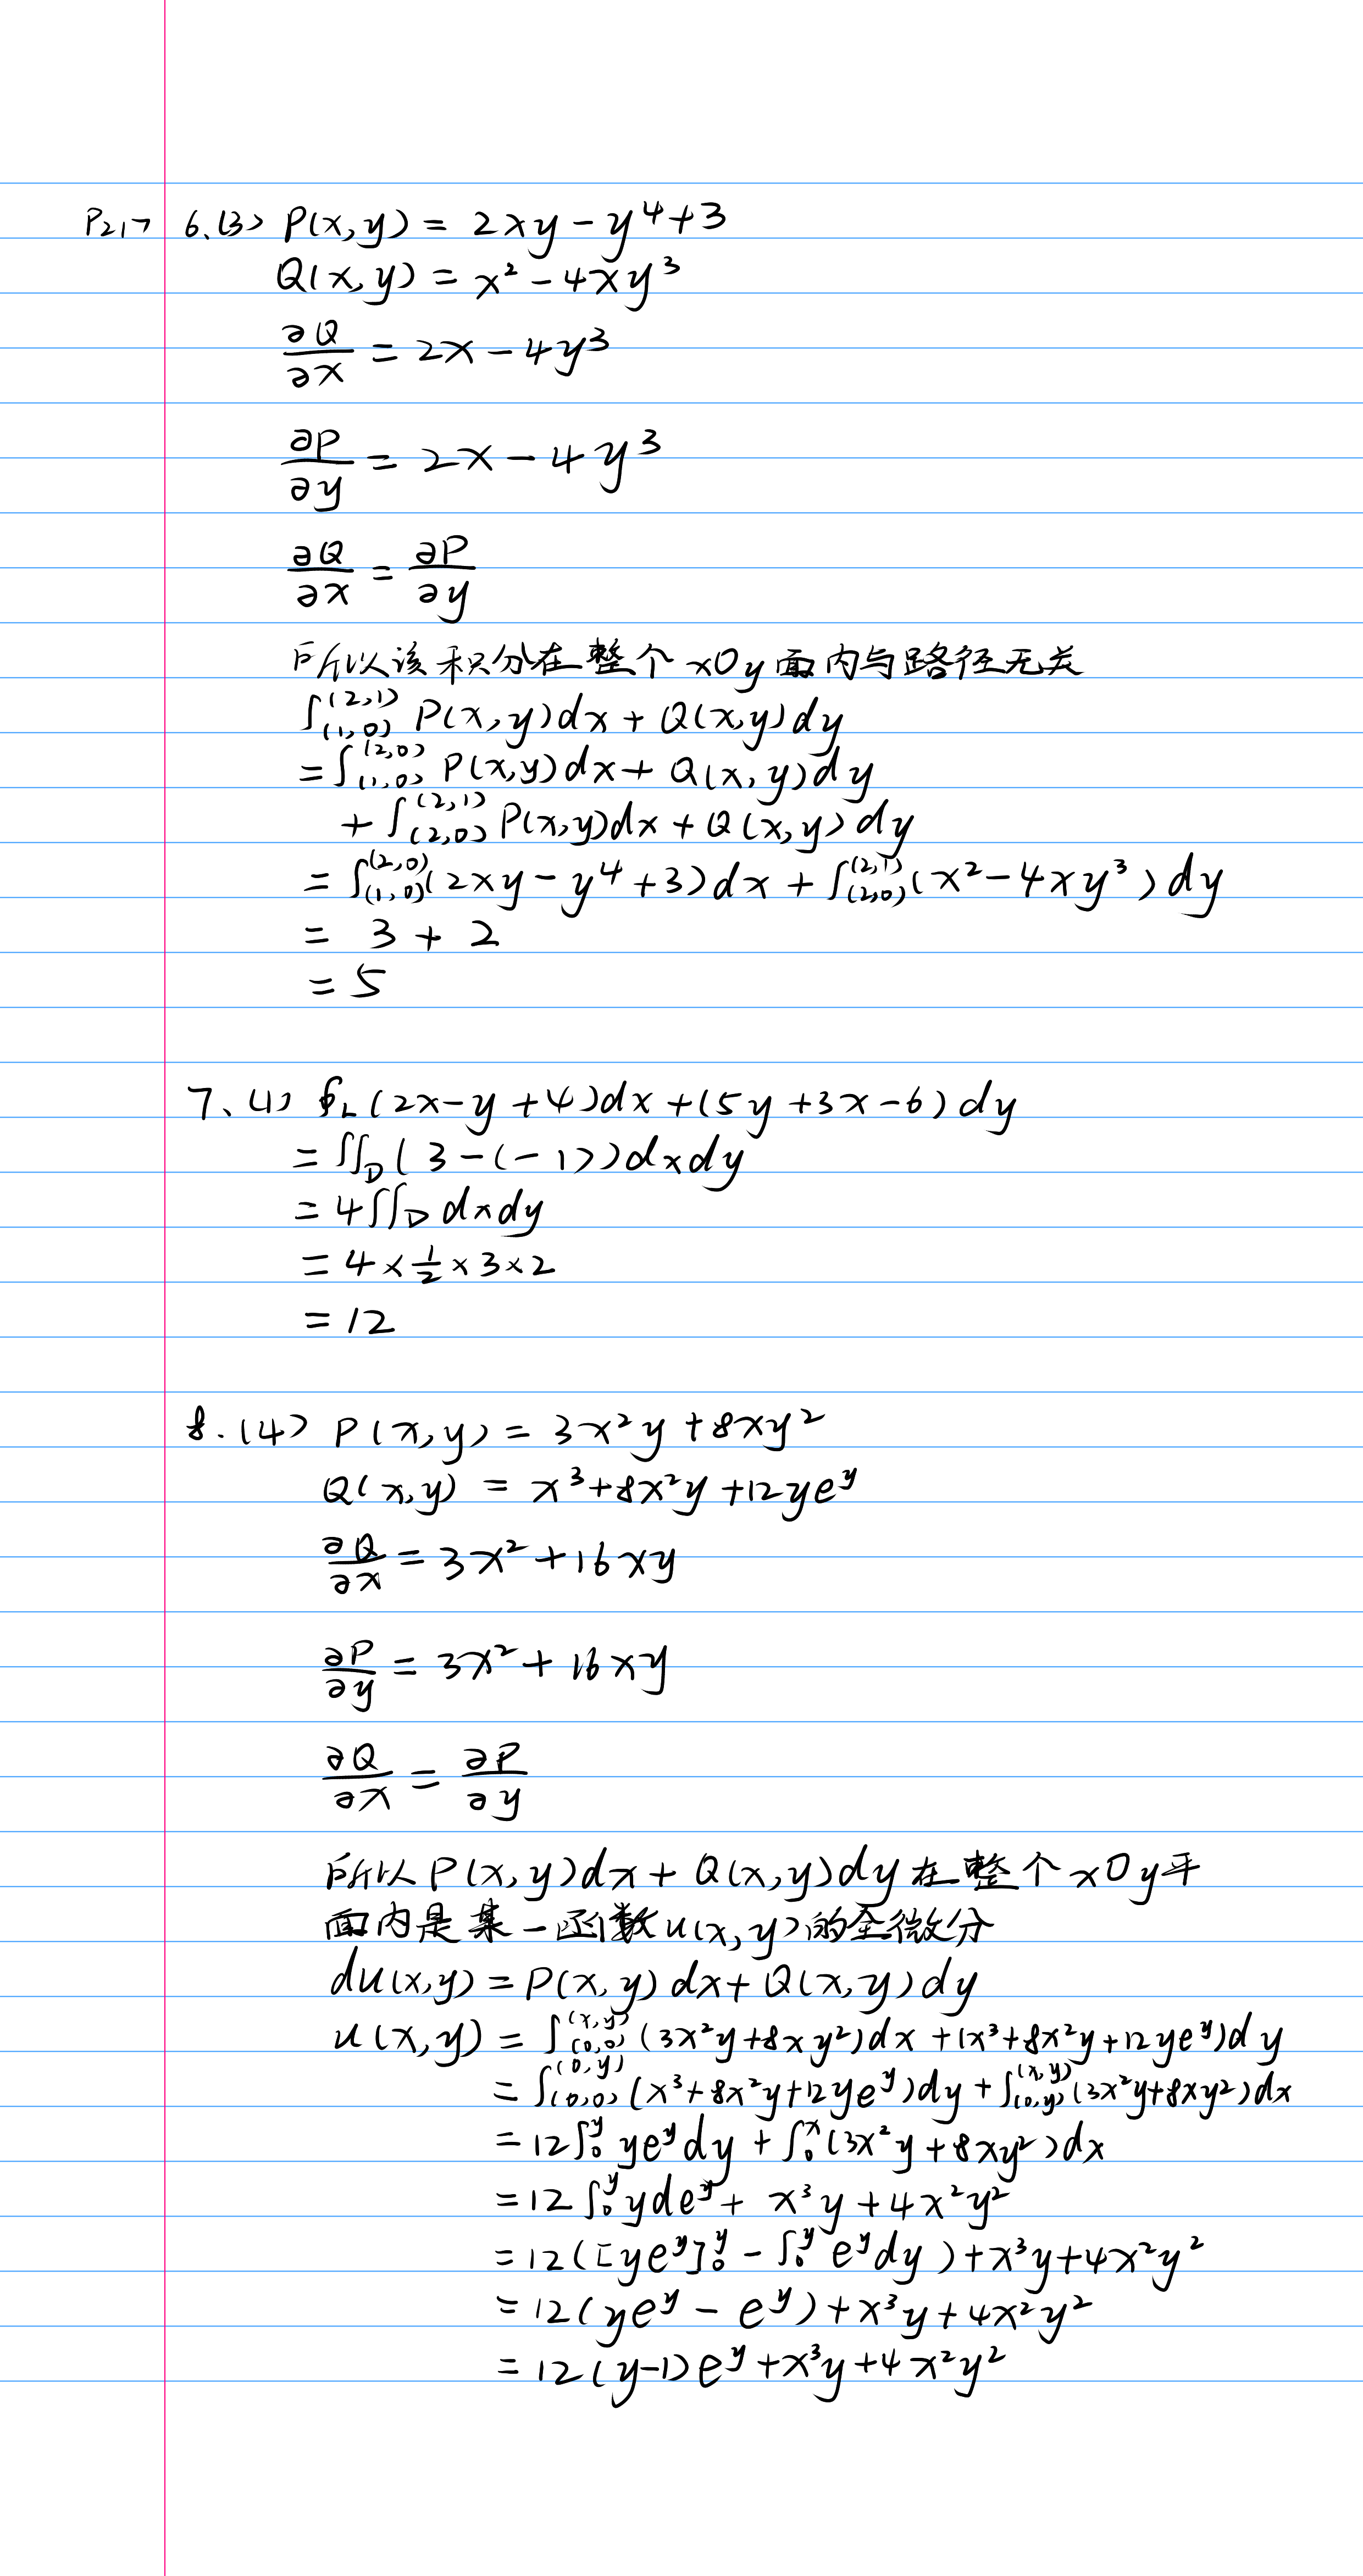 P217 6.(3) P(x,y) = 2xy - y⁴ + 3
Q(x,y) = x² - 4xy³
∂Q/∂x = 2x - 4y³
∂P/∂y = 2x - 4y³
∂Q/∂x = ∂P/∂y
所以该积分在整个xOy面内与路径无关
∫_(1,0)^(2,1) P(x,y)dx + Q(x,y)dy
= ∫_(1,0)^(2,0) P(x,y)dx + Q(x,y)dy
+ ∫_(2,0)^(2,1) P(x,y)dx + Q(x,y)dy
= ∫_(1,0)^(2,0) (2xy - y⁴ + 3)dx + ∫_(2,0)^(2,1) (x² - 4xy³)dy
= 3 + 2
= 5
7.(1) ∮_L (2x - y + 4)dx + (5y + 3x - 6)dy
= ∬_D (3 - (-1))dxdy
= 4∬_D dxdy
= 4 × 1/2 × 3 × 2
= 12
8.(4) P(x,y) = 3x²y + 8xy²
Q(x,y) = x³ + 8x²y + 12ye^y
∂Q/∂x = 3x² + 16xy
∂P/∂y = 3x² + 16xy
∂Q/∂x = ∂P/∂y
所以P(x,y)dx + Q(x,y)dy在整个xOy平
面内是某一函数u(x,y)的全微分
du(x,y) = P(x,y)dx + Q(x,y)dy
u(x,y) = ∫_(0,0)^(x,y) (3x²y + 8xy²)dx + (x³ + 8x²y + 12ye^y)dy
= ∫_(0,0)^(0,y) (x³ + 8x²y + 12ye^y)dy + ∫_(0,y)^(x,y) (3x²y + 8xy²)dx
= 12∫_0^y ye^y dy + ∫_0^x (3x²y + 8xy²)dx
= 12∫_0^y yde^y + x³y + 4x²y²
= 12([ye^y]_0^y - ∫_0^y e^y dy) + x³y + 4x²y²
= 12(ye^y - e^y) + x³y + 4x²y²
= 12(y-1)e^y + x³y + 4x²y²